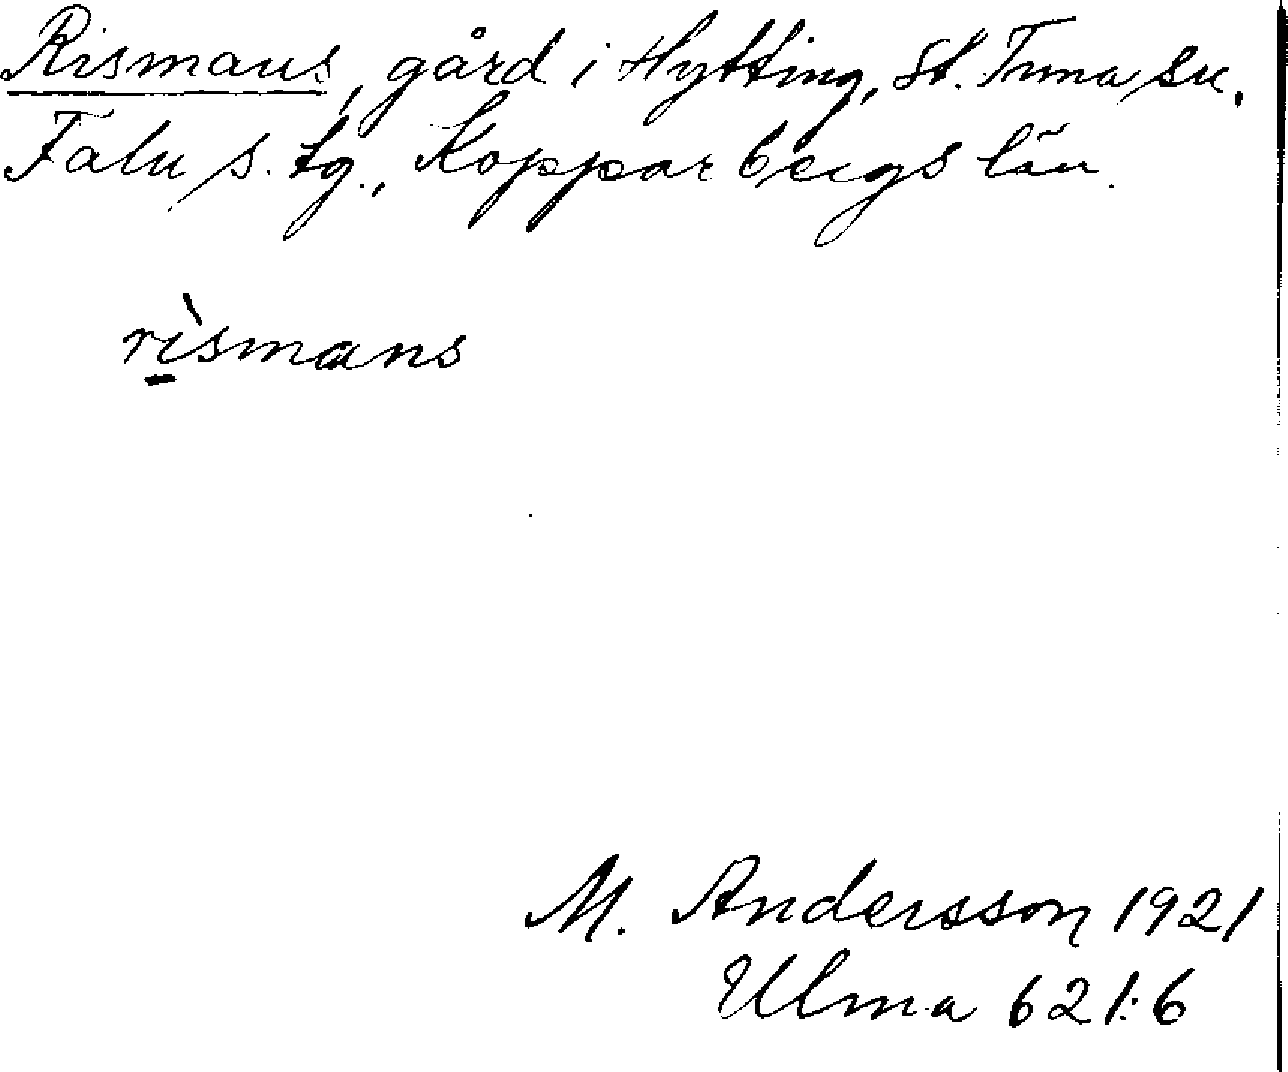 Rismans, gård i Hytting, St. Tuna sn.
Falu s. tg., Kopparbergs län.
rìsmans
M. Andersson 1921
Ulma 621:6